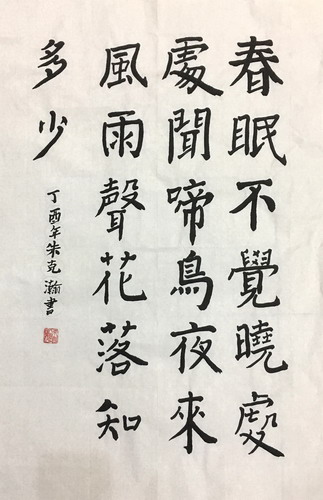 春眠不覺曉處
處聞啼鳥夜來
風雨聲花落知
多少
丁酉年朱克瀚書